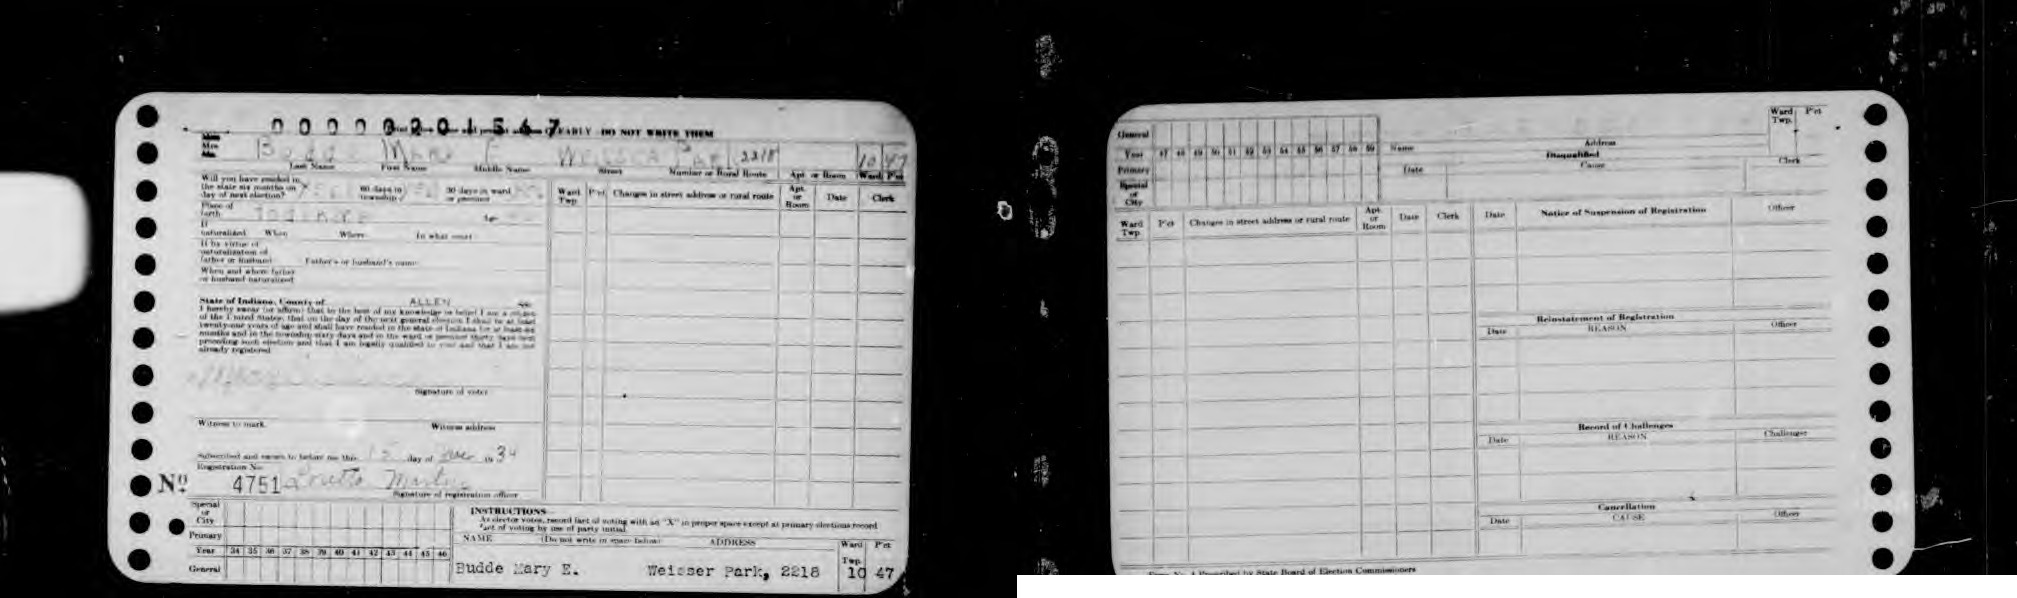 0000201567
EARLY DO NOT WRITE THEM
Mrs
Mary E Weisser Park 2218 10 47
Last Name First Name Middle Name Street Number or Rural Route Apt. or Room Ward P'ct
Will you have resided in
the state six months on 60 days in 30 days in ward
day of next election? township? or precinct
Place of
birth
If
naturalized When Where In what court
If by virtue of
naturalization of
father or husband Father's or husband's name
When and where father
or husband naturalized
State of Indiana, County of ALLEN ss:
I hereby swear (or affirm) that to the best of my knowledge or belief I am a citizen
of the United States; that on the day of the next general election I shall be at least
twenty-one years of age and shall have resided in the state of Indiana for at least six
months and in the township sixty days and in the ward or precinct thirty days next
preceding such election and that I am legally qualified to vote and that I am not
already registered
Signature of voter
Witness to mark Witness address
Subscribed and sworn to before me this 15 day of 1934
Registration No.
No 4751 Loretta
Signature of registration officer
Ward Twp. P'ct. Changes in street address or rural route Apt. or Room Date Clerk
Special
or
City
Primary
Year 34 35 36 37 38 39 40 41 42 43 44 45 46
General
INSTRUCTIONS
As elector votes, record fact of voting with an "X" in proper space except at primary elections record
fact of voting by use of party initial.
NAME (Do not write in space below) ADDRESS Ward Twp. P'ct
Budde Mary E. Weisser Park, 2218 10 47
General
Year 47 48 49 50 51 52 53 54 55 56 57 58 59
Primary
Special
or
City
Name Address Ward Twp. P'ct
Disqualified
Date Cause Clerk
Ward Twp. P'ct Changes in street address or rural route Apt. or Room Date Clerk
Date Notice of Suspension of Registration Officer
Reinstatement of Registration
Date REASON Officer
Record of Challenges
Date REASON Challenger
Cancellation
Date CAUSE Officer
Form No. 4 Prescribed by State Board of Election Commissioners